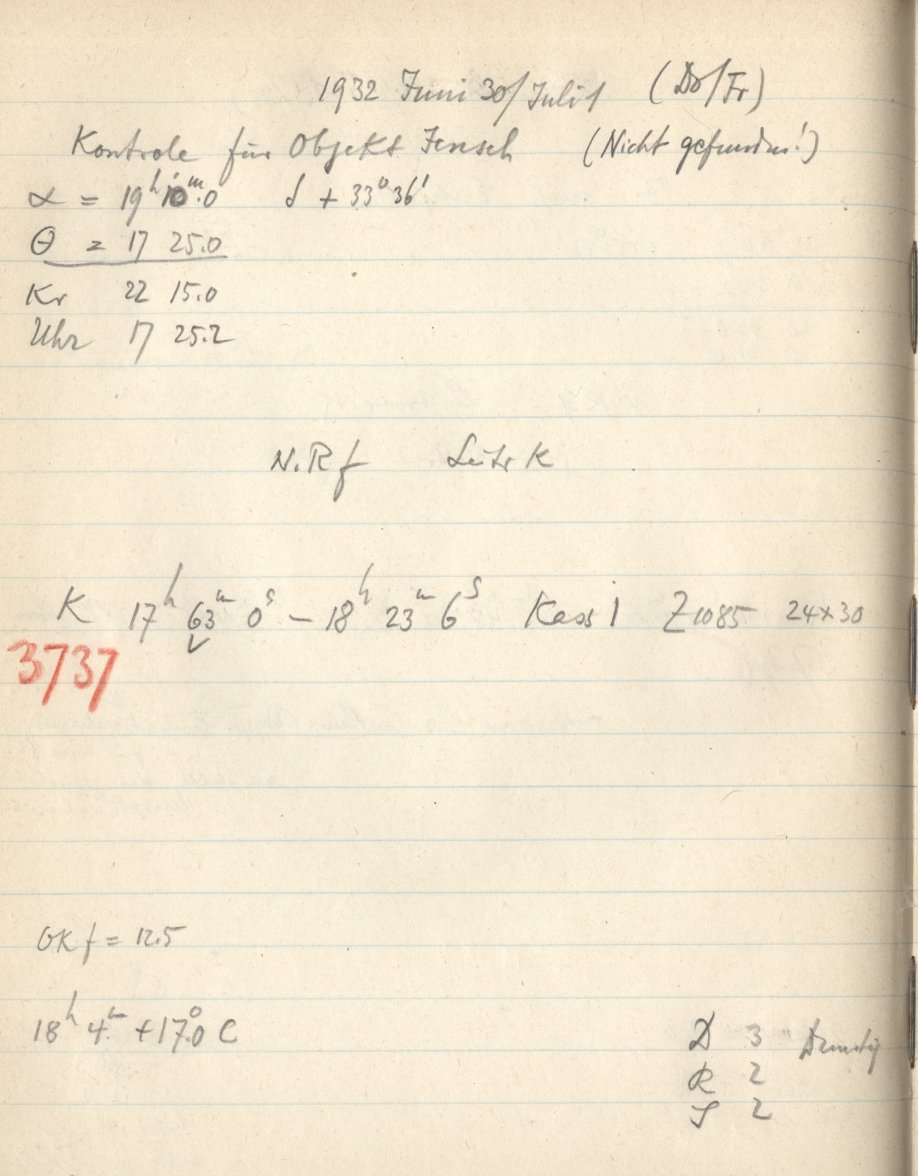 1932 Juni 30/Juli 1 (Do/Fr)
Kontrole für Objekt Jensch (Nicht gefunden!)
α = 19h 10m.0 δ + 33° 36'
θ = 17 25.0
Kr 22 15.0
Uhr 17 25.2
N.R f Leitr K
K 17h 63m 0s – 18h 23m 6s Kass 1 Z1085 24x30
3737
OK f = 12.5
18h 4m +17.0° C
D 3 Dunstig
R 2
S 2